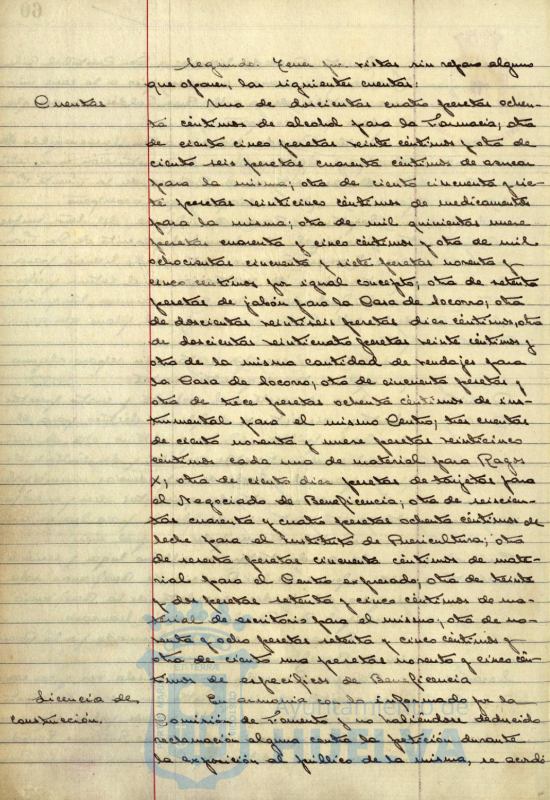 Segundo. Tener por vistas sin reparo alguno
que oponer, las siguientes cuentas:
Cuentas
Una de doscientas cuatro pesetas ochen-
ta céntimos de alcohol para la Farmacia; otra
de ciento cinco pesetas veinte céntimos y otra de
ciento seis pesetas cuarenta céntimos de azucar
para la misma; otra de ciento cincuenta y sie-
te pesetas veinticinco céntimos de medicamentos
para la misma; otra de mil quinientas nueve
pesetas cuarenta y cinco céntimos y otra de mil
ochocientas cincuenta y siete pesetas noventa y
cinco céntimos por igual concepto; otra de setenta
pesetas de jabón para la Casa de Socorro; otra
de doscientas veintiseis pesetas diez céntimos, otra
de doscientas veinticuatro pesetas veinte céntimos y
otra de la misma cantidad de vendajes para
la Casa de Socorro; otra de cincuenta pesetas y
otra de trece pesetas ochenta céntimos de ins-
trumental para el mismo Centro; tres cuentas
de ciento noventa y nueve pesetas veinticinco
céntimos cada una de material para Rayos
X; otra de ciento diez pesetas de tarjetas para
el Negociado de Beneficencia; otra de seiscien-
tas cuarenta y cuatro pesetas ochenta céntimos de
leche para el Instituto de Puericultura; otra
de sesenta pesetas cincuenta céntimos de mate-
rial para el Centro expresado; otra de treinta
y dos pesetas setenta y cinco céntimos de ma-
terial de escritorio para el mismo; otra de no-
venta y ocho pesetas setenta y cinco céntimos y
otra de ciento una pesetas noventa y cinco cén-
timos de específicos de Beneficencia
Licencia de
construcción.
En armonia con lo informado por la
Comisión de Fomento y no habiéndose deducido
reclamación alguna contra la petición durante
la exposición al público de la misma, se acordó
Ayuntamiento de
HUELVA